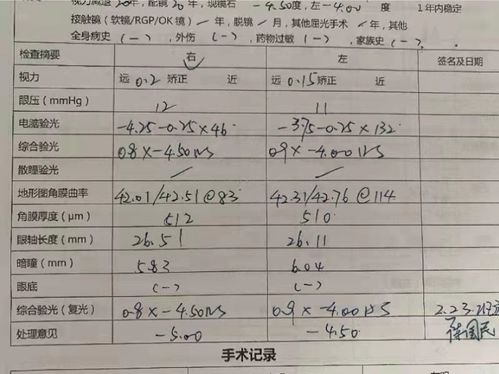 年，配镜 20 年，现镜右 -4.50度，左 -4.00 度 1年内稳定
接触镜（软镜/RGP/OK镜）/ 年，脱镜 / 月，其他屈光手术 / 年，其他
全身病史（-），外伤（-），药物过敏（-），家族史（-）
检查摘要 右 左 签名及日期
视力 远 0.2 矫正 近 远 0.15 矫正 近
眼压（mmHg） 12 11
电脑验光 -4.25-0.25×46 -3.75-0.25×132
综合验光 0.8×-4.50DS 0.9×-4.00DS
散瞳验光 / /
地形图角膜曲率 42.01/42.51@83 42.31/42.76@114
角膜厚度（μm） 512 510
眼轴长度（mm） 26.51 26.11
暗瞳（mm） 5.83 6.04
眼底 (-) (-)
综合验光（复光） 0.8×-4.50DS 0.9×-4.00DS 2.23
处理意见 -5.00 -4.50
手术记录